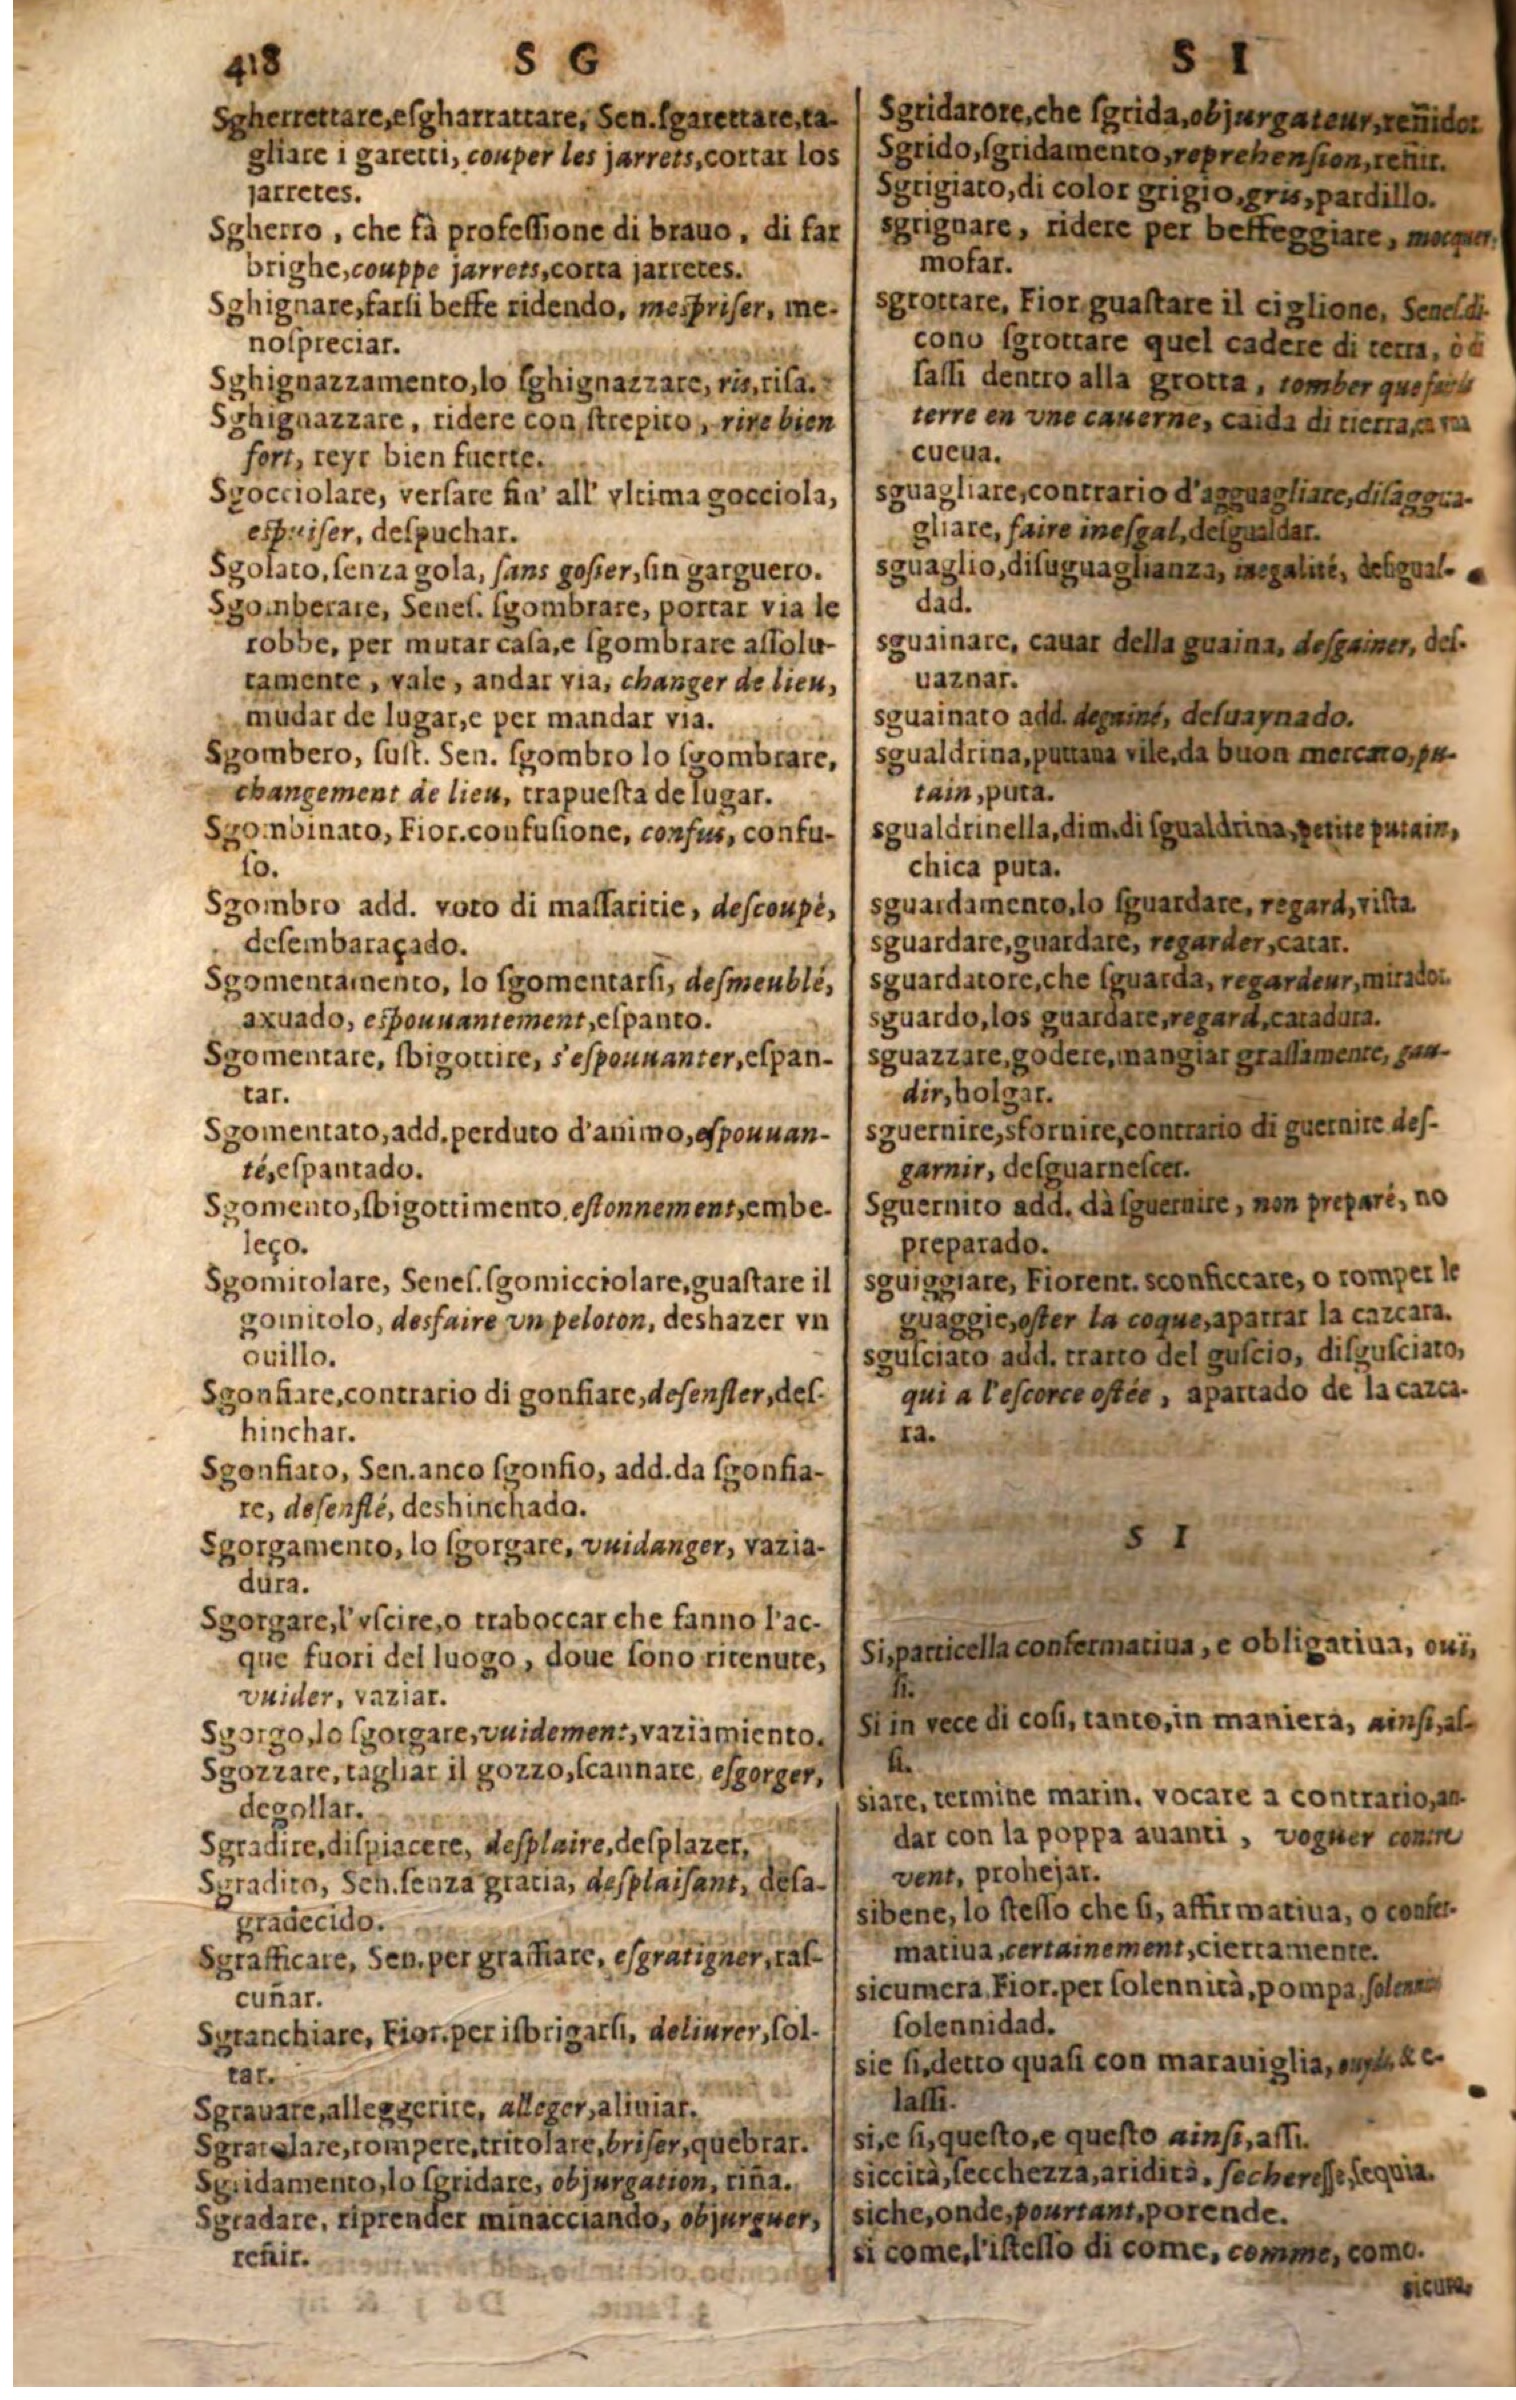 418 S G S I
Sgherrettare,eſgharrattare, Sen.ſgarettare,ta-
gliare i garetti, couper les jarrets,cortar los
jarretes.
Sgherro , che fà profeſſione di brauo , di far
brighe,couppe jarrets,corta jarretes.
Sghignare,farſi beffe ridendo, meſpriſer, me-
noſpreciar.
Sghignazzamento,lo ſghignazzare, ris,riſa.
Sghignazzare , ridere con ſtrepito , rire bien
fort, reyr bien fuerte.
Sgocciolare, verſare fin' all' vltima gocciola,
eſpuiſer, deſpuchar.
Sgolato,ſenza gola, ſans goſier,ſin garguero.
Sgomberare, Seneſ. ſgombrare, portar via le
robbe, per mutar caſa,e ſgombrare aſſolu-
tamente , vale , andar via, changer de lieu,
mudar de lugar,e per mandar via.
Sgombero, ſuſt. Sen. ſgombro lo ſgombrare,
changement de lieu, trapueſta de lugar.
Sgombinato, Fior.confuſione, confus, confu-
ſo.
Sgombro add. voto di maſſaritie, deſcoupè,
deſembaraçado.
Sgomentamento, lo ſgomentarſi, deſmeublé,
axuado, eſpouuantement,eſpanto.
Sgomentare, ſbigottire, s'eſpouuanter,eſpan-
tar.
Sgomentato,add.perduto d'animo,eſpouuan-
té,eſpantado.
Sgomento,ſbigottimento,eſtonnement,embe-
leço.
Sgomitolare, Seneſ.ſgomicciolare,guaſtare il
gomitolo, desfaire vn peloton, deshazer vn
ouillo.
Sgonfiare,contrario di gonfiare,deſenfler,deſ-
hinchar.
Sgonfiato, Sen.anco ſgonfio, add.da ſgonfia-
re, deſenflé, deshinchado.
Sgorgamento, lo ſgorgare, vuidanger, vazia-
dura.
Sgorgare,l'vſcire,o traboccar che fanno l'ac-
que fuori del luogo , doue ſono ritenute,
vuider, vaziar.
Sgorgo,lo ſgorgare,vuidement,vaziamiento.
Sgozzare, tagliar il gozzo,ſcannare, eſgorger,
degollar.
Sgradire,diſpiacere, deſplaire,deſplazer,
Sgradito, Sen.ſenza gratia, deſplaiſant, deſa-
gradecido.
Sgrafficare, Sen.per graffiare, eſgratigner,raſ-
cuñar.
Sgranchiare, Fior.per iſbrigarſi, deliurer,ſol-
tar.
Sgrauare,alleggerire, alleger,aliuiar.
Sgratolare,rompere,tritolare,briſer,quebrar.
Sgridamento,lo ſgridare, objurgation, riña.
Sgradare, riprender minacciando, objurguer,
reñir.
Sgridarore,che ſgrida,objurgateur,reñidor
Sgrido,ſgridamento,reprehenſion,reñir.
Sgrigiato,di color grigio,gris,pardillo.
sgrignare, ridere per beffeggiare, mocquer,
mofar.
sgrottare, Fior.guaſtare il ciglione, Seneſ.di-
cono ſgrottare quel cadere di terra, ò di
ſaſſi dentro alla grotta , tomber que
terre en vne cauerne, caida di tierra,
cueua.
sguagliare,contrario d'agguagliare,diſaggua-
gliare, faire ineſgal,deſgualdar.
sguaglio,diſuguaglianza, inegalité, deſigual-
dad.
sguainare, cauar della guaina, deſgainer, deſ-
uaznar.
sguainato add. degainé, deſuaynado.
sgualdrina,puttana vile,da buon mercato,pu-
tain,puta.
sgualdrinella,dim.di ſgualdrina,petite putain,
chica puta.
sguardamento,lo ſguardare, regard,viſta
sguardare,guardare, regarder,catar.
sguardatore,che ſguarda, regardeur,mirador.
sguardo,los guardare,regard,catadura.
sguazzare,godere,mangiar graſſamente, gau-
dir,holgar.
sguernire,sfornire,contrario di guernire deſ-
garnir, deſguarneſcer.
Sguernito add. dà ſguernire , non preparé, no
preparado.
sguiggiare, Fiorent. sconficcare, o romper le
guaggie,oſter la coque,apartar la cazcara.
sguſciato add. tratto del guſcio, diſguſciato,
qui a l'eſcorce oſtée , apartado de la cazca-
ra.
S I
Si,particella confermatiua, e obligatiua, ouï,
ſi.
Si in vece di coſi, tanto,in maniera, ainſi,aſ-
ſi.
siare, termine marin. vocare a contrario,an-
dar con la poppa auanti , voguer contre
vent, prohejar.
sibene, lo ſteſſo che ſi, affirmatiua, o confer-
matiua,certainement,ciertamente.
sicumera,Fior.per ſolennità,pompa,
ſolennidad.
sie ſi,detto quaſi con marauiglia, & e-
laſſi.
si,e ſi,queſto,e queſto ainſi,aſſi.
siccità,ſecchezza,aridità, ſechereſſe,ſequia.
siche,onde,pourtant,porende.
si come,l'iſteſſo di come, comme, como.
sicura,